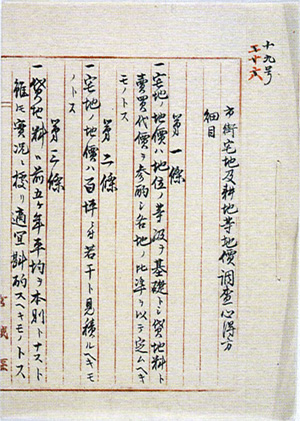 十九号
市街宅地及耕地等地價調査心得方
細目
第一條
一宅地ノ地價ハ地位ノ等級ヲ基礎トシ貸地料ト
賣買代價ヲ參酌シ各地ノ比準ヲ以テ定ムヘキ
モノトス
第二條
一宅地ノ地價ハ百坪ニ付若干ト見積ルヘキモ
ノトス
第三條
一貸地料ハ前五ケ年平均ヲ本則トナスト
雖モ實況ニ據リ適宜斟酌スヘキモノトス